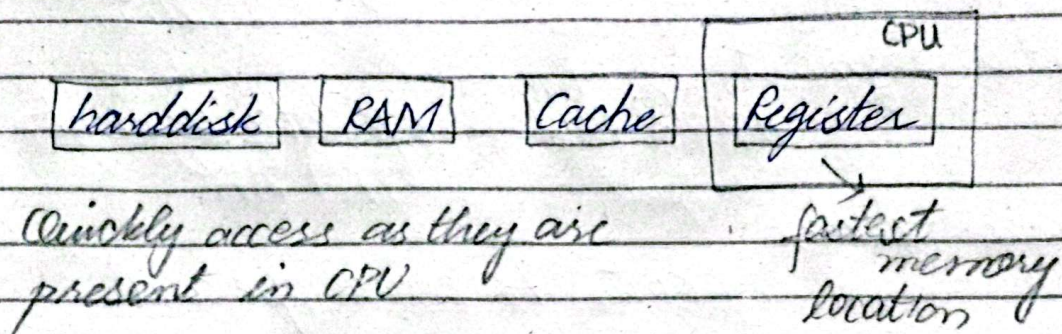 CPU
harddisk RAM Cache Register
Quickly access as they are
present in CPU
fastest
memory
location